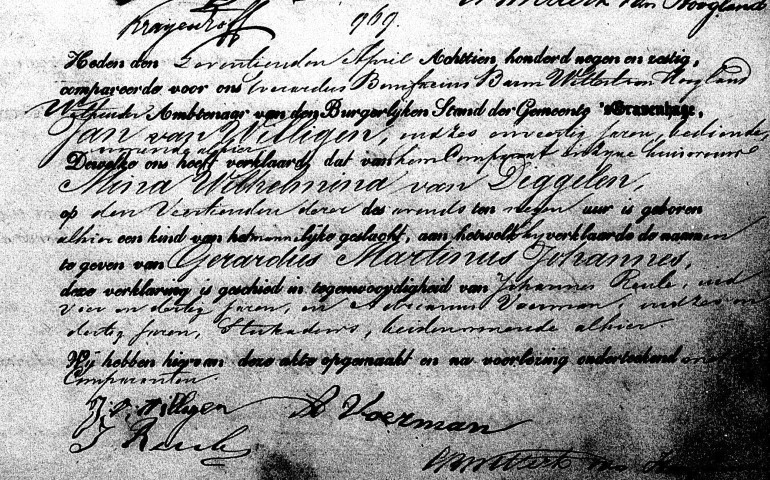 van Hoogland
Krayenhoff 969.
Heden den Zeventienden April Achttien honderd negen en zestig,
compareerde voor ons Everardus Bonifacius Baron Wittert van Hoogland
Wethouder Ambtenaar van den Burgerlijken Stand der Gemeente 'sGravenhage,
Jan van Willigen, oud zes en veertig Jaren, bediende,
wonende alhier
Dewelke ons heeft verklaard, dat van hem Comparant huisvrouw
Mina Wilhelmina van Diggelen,
op den Veertienden dezer des avonds ten negen uur is geboren
alhier een kind van het mannelijke geslacht, aan hetwelk hij verklaarde de namen
te geven van Gerardus Martinus Johannes,
deze verklaring is geschied in tegenwoordigheid van Johannes Reule, oud
Vier en dertig Jaren, en Adrianus Voerman, oud zes en
dertig Jaren, Stukadoors, beiden wonende alhier.
Wij hebben hiervan deze akte opgemaakt en na voorlezing onderteekend
Comparanten.
J. v. Willigen A Voerman
J Reule
Wittert van